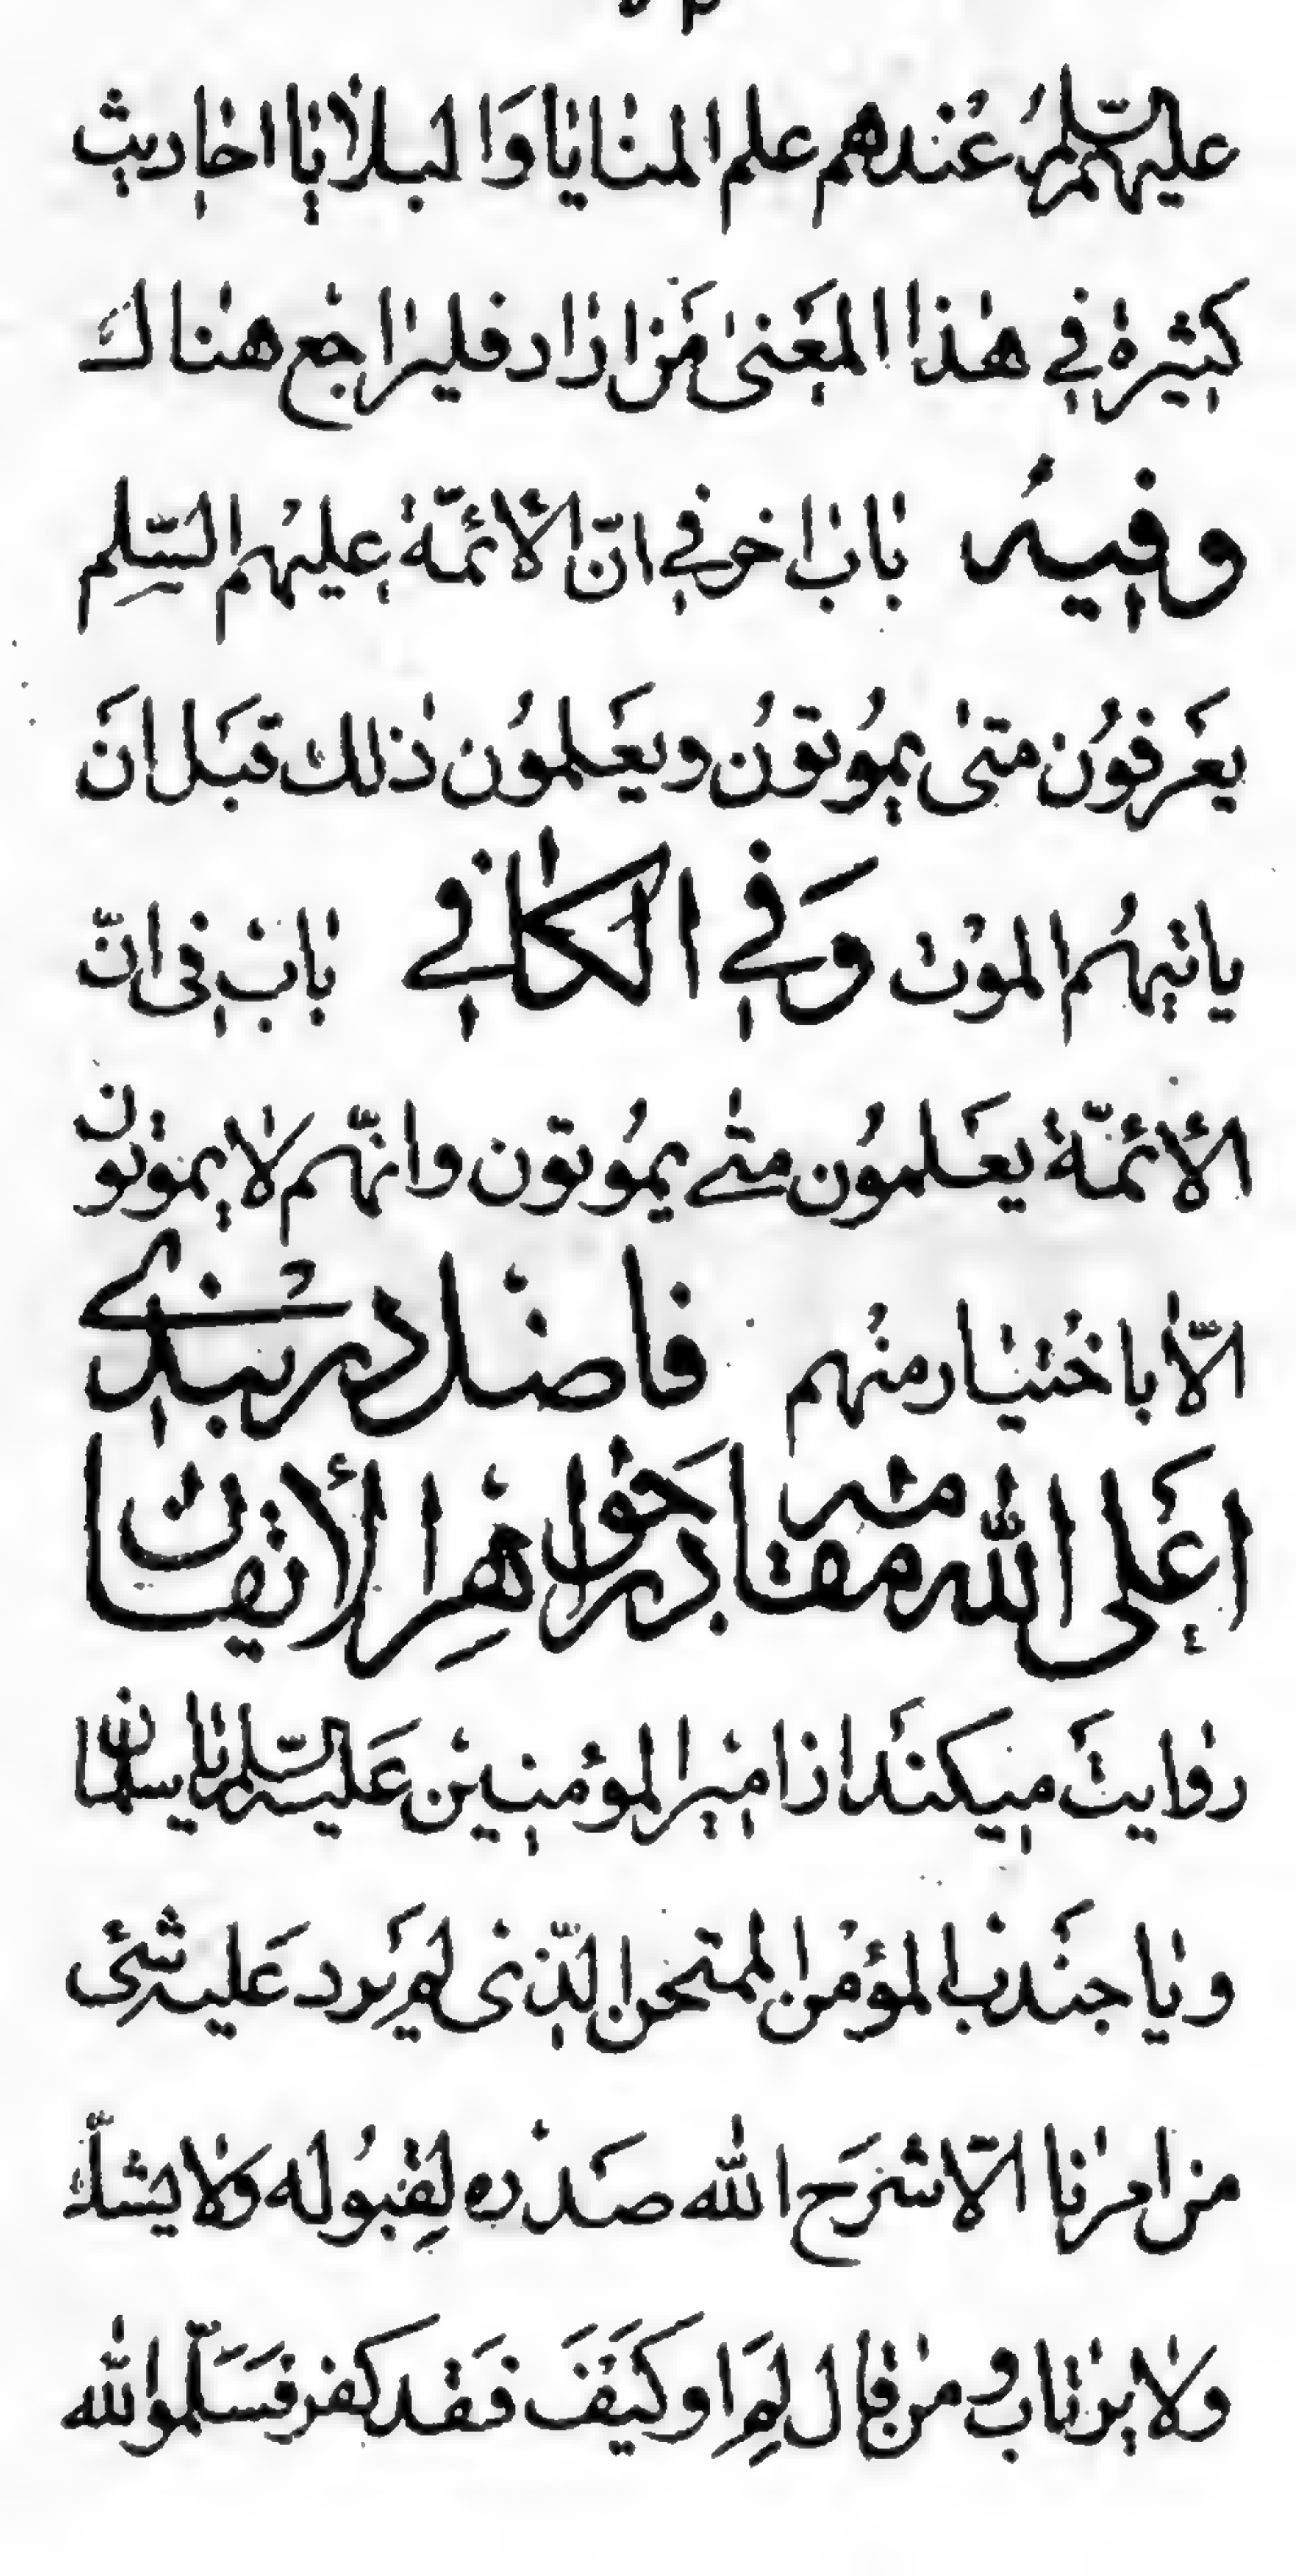 علیهم السّلم عندهم علم المنایا وَ البلایا احادیث
کثیرة فی هذا المعنیٰ مَن اراد فلیراجع هناک
وفیه باب اخر فی انّ الأئمّة علیهم السّلم
یعرفُون متیٰ یمُوتونُ ویعَلمُون ذٰلك قبَل انَ
یاتیهُم الموْت وَفی الکافی بابْ فی انّ
الأئمّة یعَلموُن متیٰ یمُوتون وانهّم لا یموتون
الّا باختیار منهُم فاضل دربندی
اعَلی الله مقامه در جَواهر الأیقان
روایتَ میکنَد از امیرالمؤمنین عَلیه السّلم یا سلمان
ویا جنَدب المؤمن الممتحن الّذی لم یَرد عَلیه شیئ
من امرنا الّا شرَح الله صَدْره لِقبُوله وَلا یشكّ
ولا یرتاب و من قال لِمَ او کیَفَ فَقد کفر فسَلّموا لله